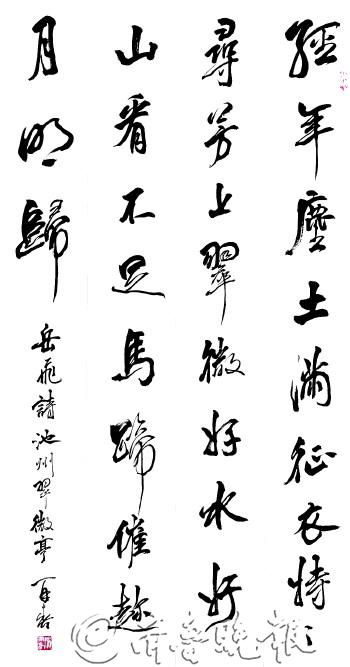 經年塵土滿征衣特〻
尋芳上翠微好水好
山看不足馬蹄催趁
月明歸
岳飛詩池州翠微亭
齐鲁晚报